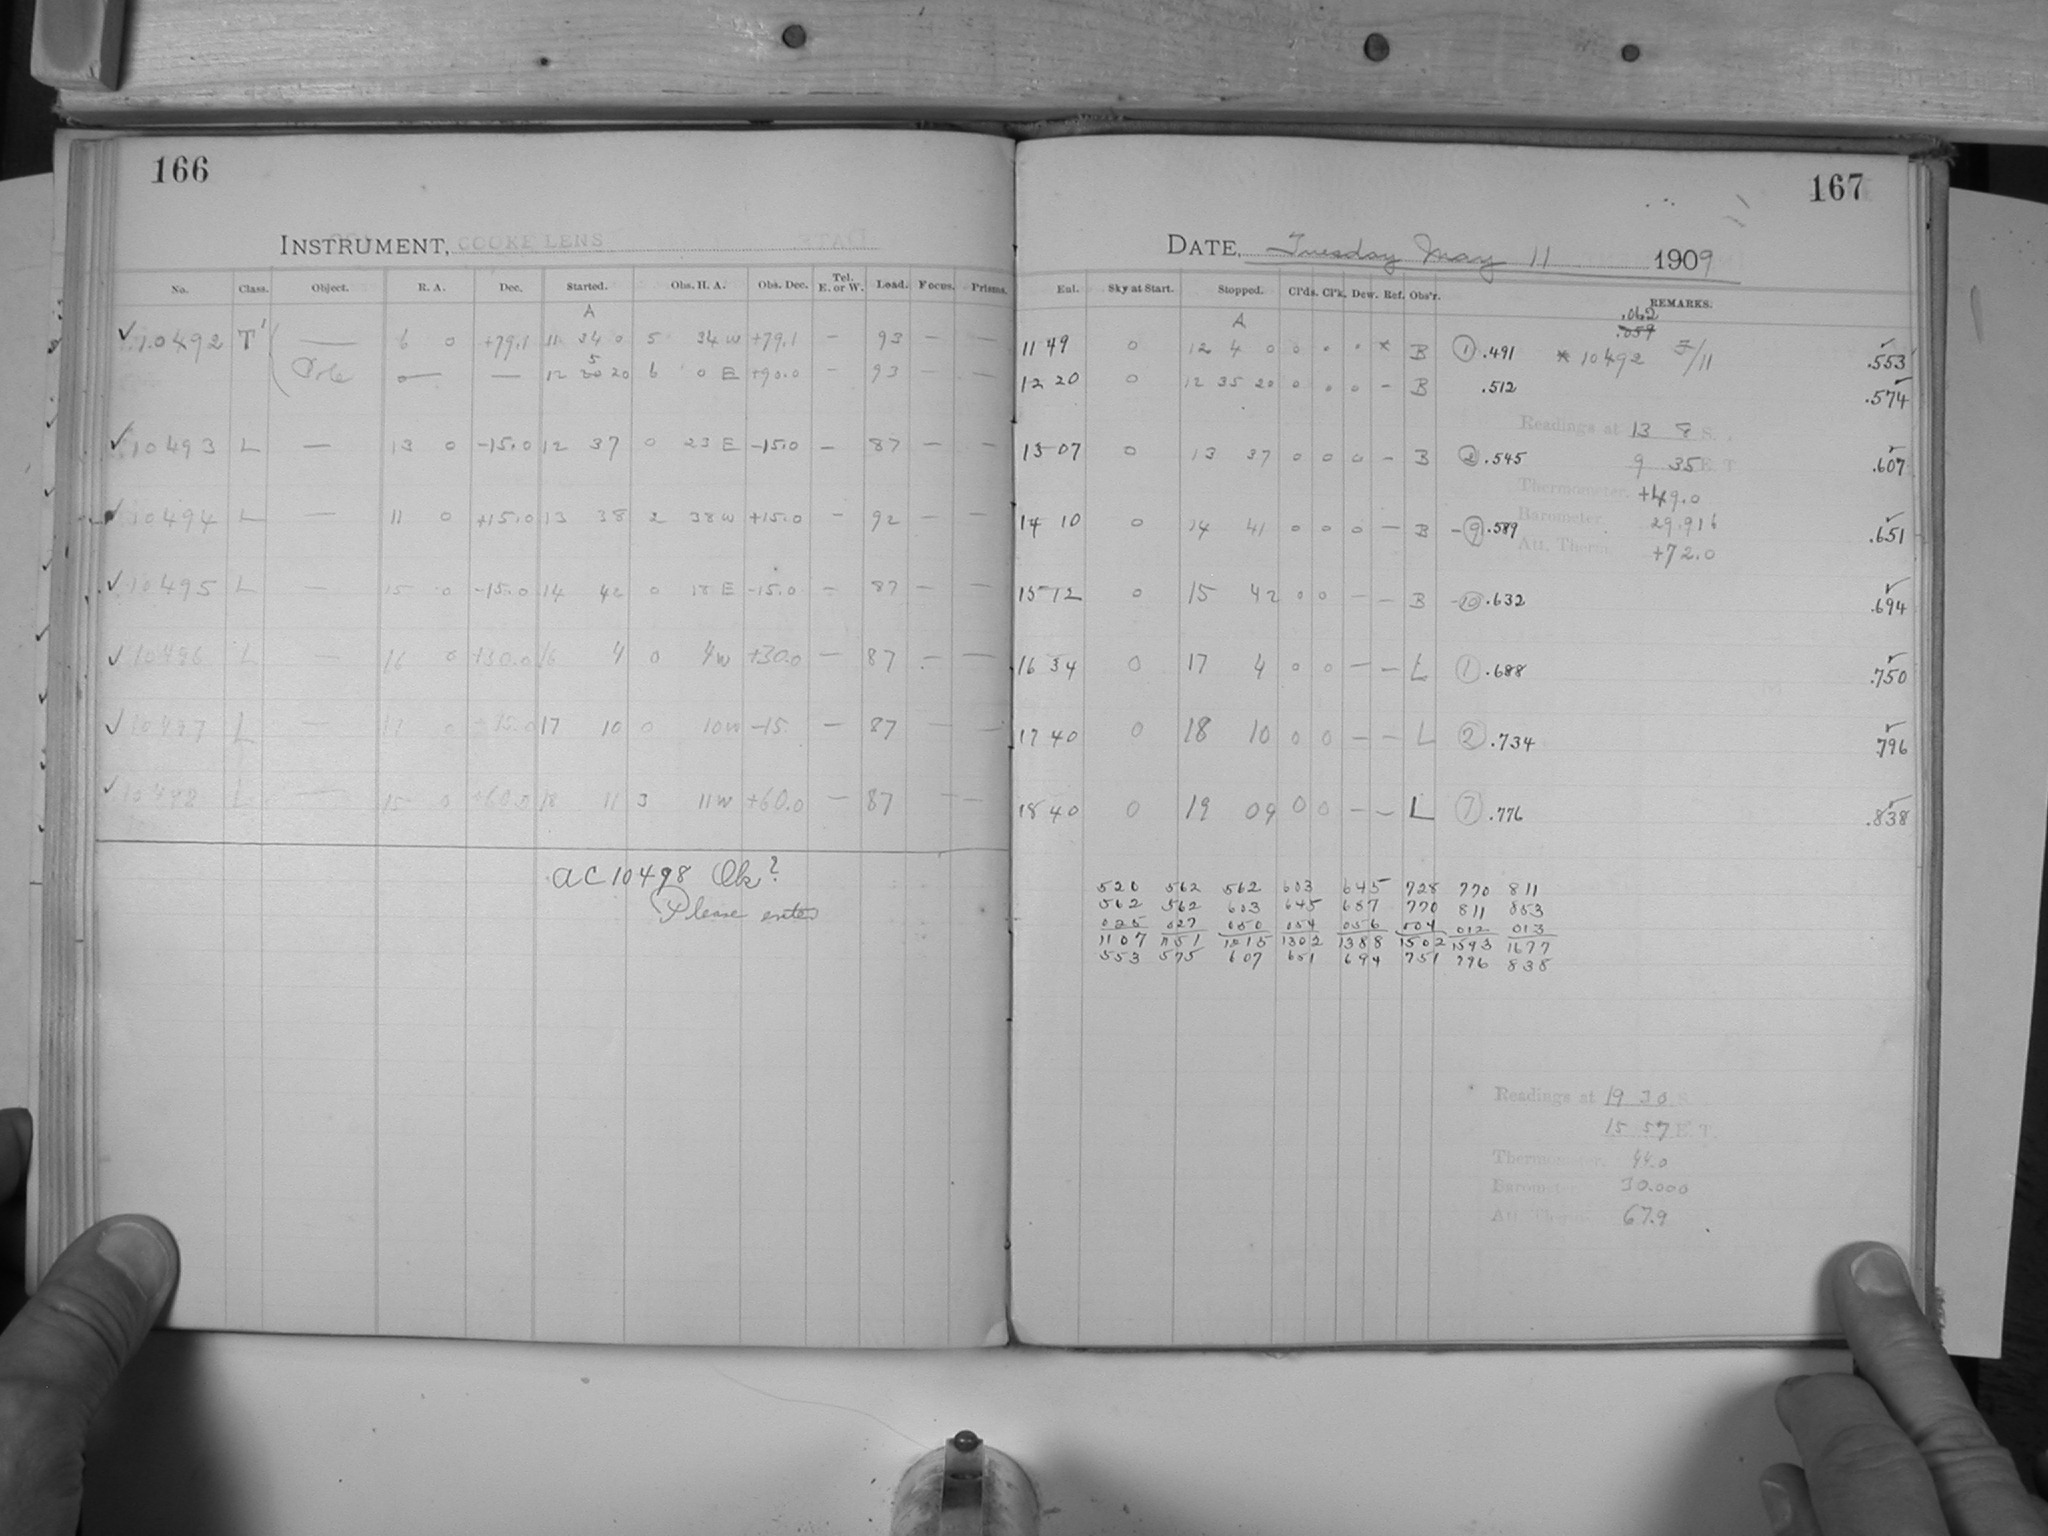 166
INSTRUMENT, COOKE LENS
No. Class. Object. R. A. Dec. Started. Obs. H. A. Obs. Dec. Tel. E. or W. Load. Focus. Prisms.
A
10492 T' — 6 0 +79.1 11 34 0 5 34 W +79.1 — 93 — —
Pole 0 — — 12 20 6 0 E +90.0 — 93 — —
10493 L — 13 0 -15.0 12 37 0 23 E -15.0 — 87 — —
10494 L — 11 0 +15.0 13 38 2 38 W +15.0 — 92 — —
10495 L — 15 0 -15.0 14 42 0 18 E -15.0 — 87 — —
10496 L — 16 0 +30.0 16 4 0 4 W +30.0 — 87 — —
10497 L — 17 0 -15.0 17 10 0 10 W -15 — 87 — —
10498 L — 15 0 +60.0 18 11 3 11 W +60.0 — 87 — —
AC 10498 Ok?
Please enter
167
DATE, Tuesday May 11 1909
Ext. Sky at Start. Stopped. Cl'ds. Cl'k. Dew. Ref. Obs'r. REMARKS.
.062
.059
A
11 49 0 12 4 0 0 . . * B 1 .491 * 10492 F/11 .553
12 20 0 12 35 20 0 0 0 — B .512 .574
Readings at 13 8 S.
13 07 0 13 37 0 0 0 — B 2 .545 9 35 E. T. .607
Thermometer. +49.0
14 10 0 14 41 0 0 0 — B 9 .589 Barometer 29.916 .651
Att. Therm. +72.0
15 12 0 15 42 0 0 — — B 10 .632 .694
16 34 0 17 4 0 0 — — L 1 .688 .750
17 40 0 18 10 0 0 — — L 2 .734 .796
18 40 0 19 09 0 0 — — L 7 .776 .838
520 562 562 603 645 728 770 811
562 562 603 645 687 770 811 853
025 027 050 054 056 004 012 013
1107 1151 1215 1302 1388 1502 1593 1677
553 575 607 651 694 751 796 838
Readings at 19 30 S.
15 57 E. T.
Thermometer. 44.0
Barometer 30.000
Att. Therm. 67.9